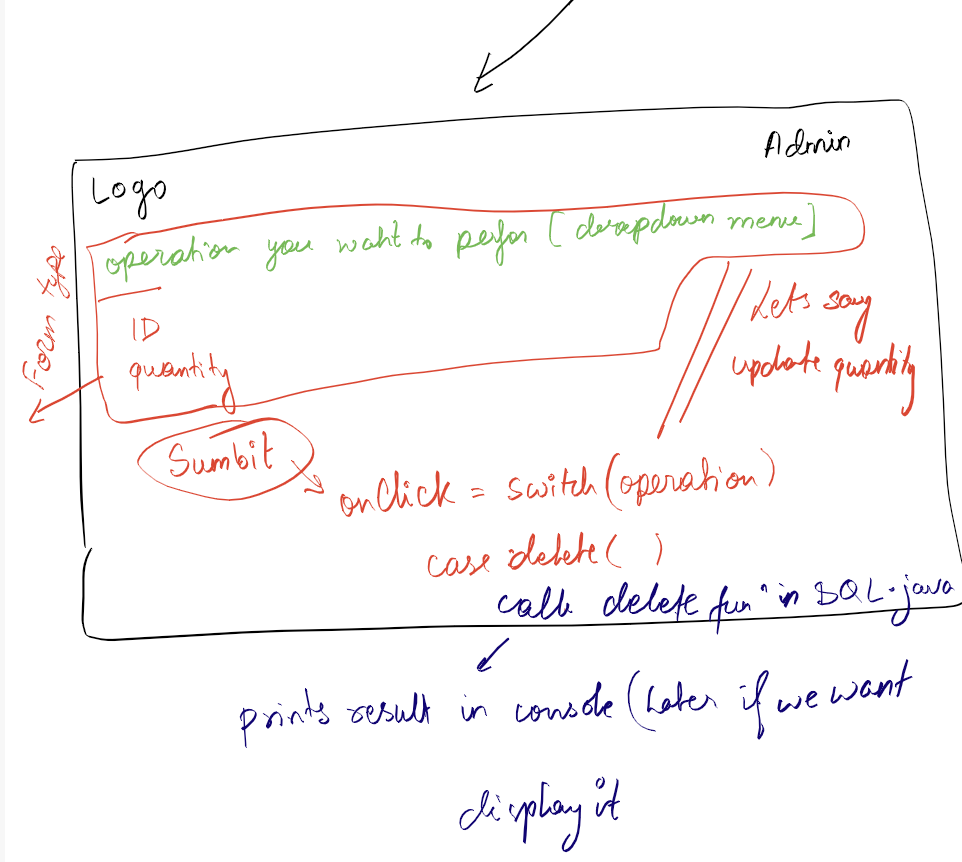 Admin
Logo
operation you waht to perfon [dropdown menu]
Form type
ID
quantity
Lets say
update quantity
Sumbit
onClick = switch(operation)
case delete( )
call delete funⁿ in SQL.java
prints result in console (Later if we want
display it